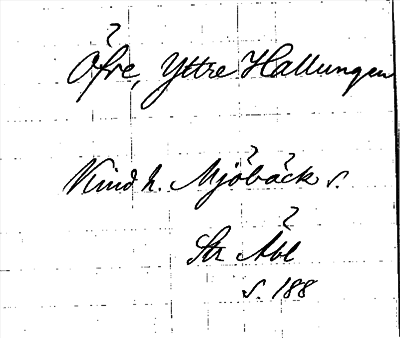 Öfre, Yttre Hallungen
Kind h. Mjöbäck s.
Str Äbl
s. 188